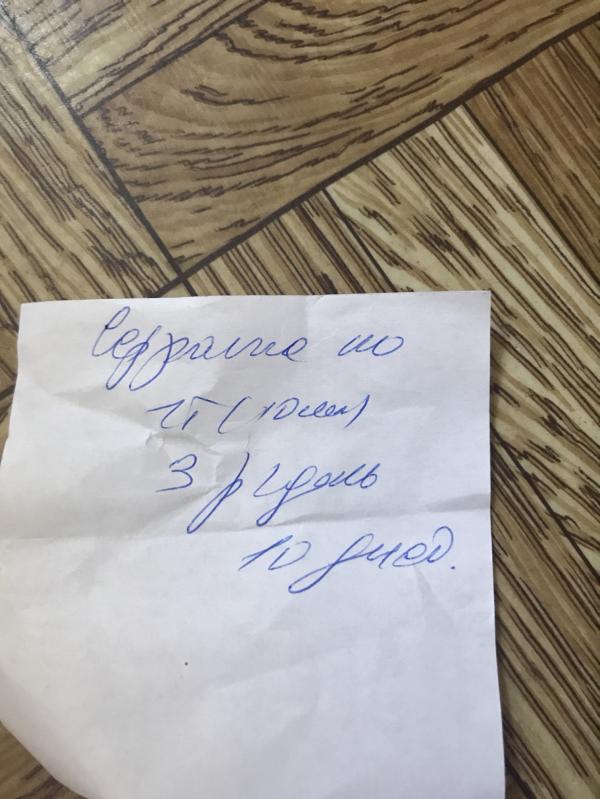 Серрата по
1т (10мг)
3 р/день
10 дней.